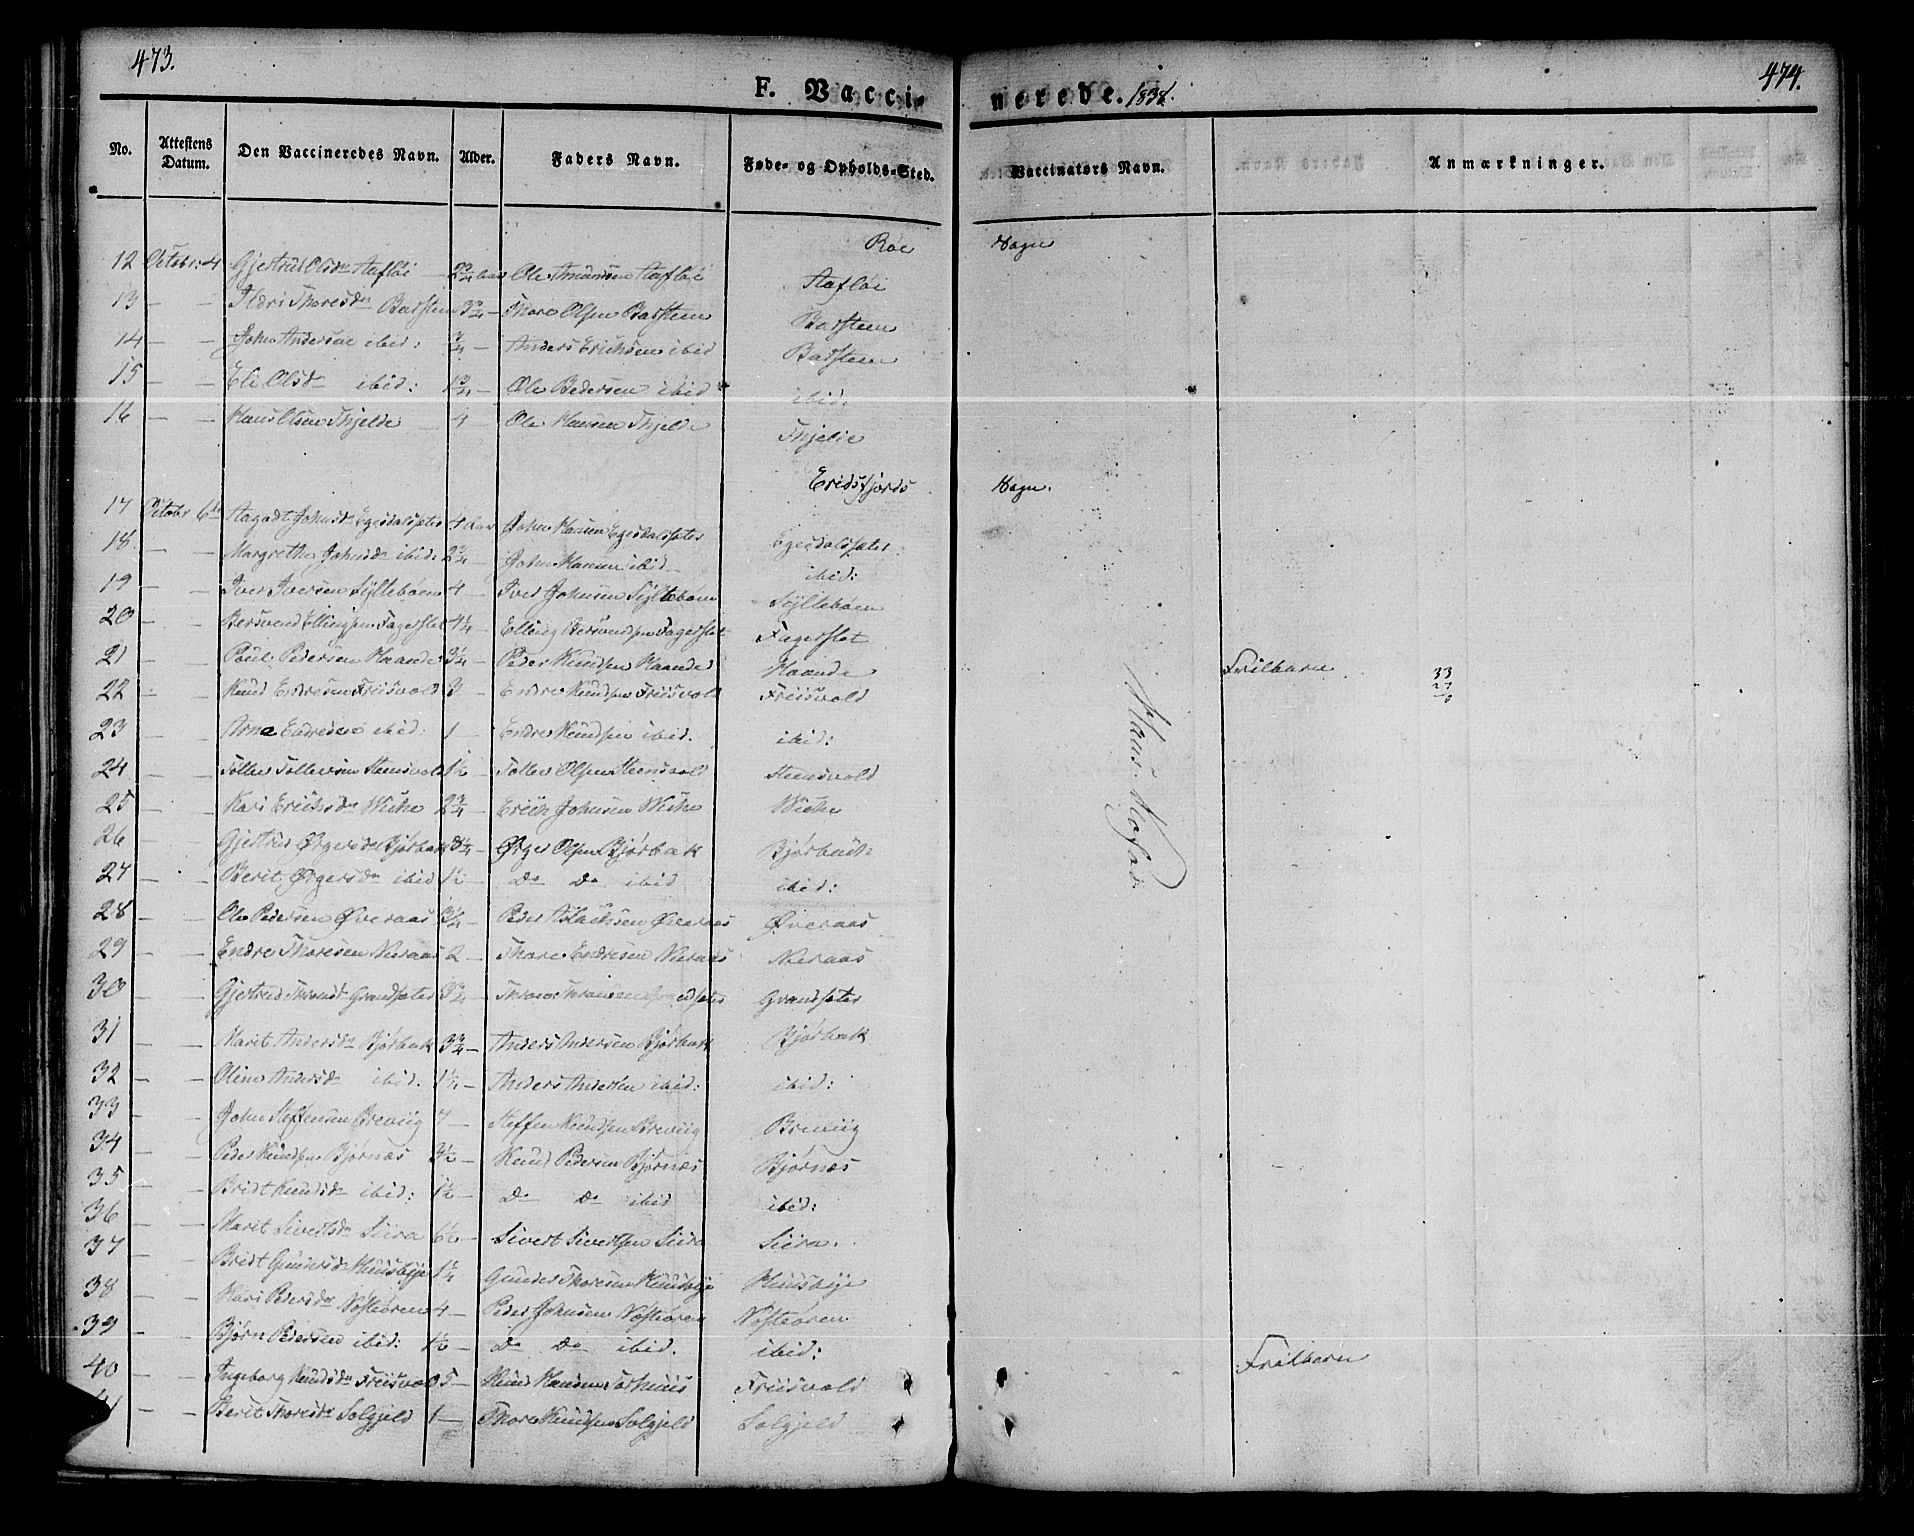 473.
474.
F. Vacci- nerede. 1838.
No.
Attestens Datum.
Den Vaccineredes Navn.
Alder.
Faders Navn.
Føde- og Opholds-Sted.
Vaccinators Navn.
Anmærkninger.
Røe Sogn
12 Octobr: 4 Gjertrud Olsdr Aafløi 2 3/4 Aar Ole Amundsen Aafløi Aafløi
13 — — Ildri Thoresdr Badsteen 3 3/4 — Thore Olsen Badsteen Badsteen
14 — — John Andersen ibid: 3/4 — Anders Erichsen ibid Badsteen
15 — — Eli Olsdr ibid: 1 3/4 — Ole Pedersen ibid ibid:
16 — — Hans Olsen Thjelde 4 — Ole Hansen Thjelde
Eridsfjords Sogn.
17 Octobr 6te Aagadt Johnsdr Egesdalsæter 4 Aar John Hansen Egesdalsæter Egesdalsæter
18 — — Margrethe Johnsdr ibid: 2 3/4 — John Hansen ibid — ibid:
19 — — Iver Iversen Sÿltebøen 4 — Iver Johnsen Sÿltebøen Sÿltebøen
20 — — Bersvend Ellingsen Fagerslet 4 1/4 — Elling Bersvendsen Fagerslet Fagerslet
21 — — Poul Pedersen Haande 3 1/4 — Peder Knudsen Haande Haande Frilbarn 33
22 — — Knud Endresen Friisvold 3 — Endre Knudsen Friisvold Friisvold
23 — — Arne Endresen ibid: 1 — Endre Knudsen ibid. ibid:
24 — — Tollev Tollevsen Steensvold 1 1/2 — Tollev Olsen Steensvold Steensvold
25 — — Kari Erichsdr Wiche 2 3/4 — Erich Johnsen Wiche Wiche
26 — — Gjertrud Ørgersdr Bjørbak 3 1/4 — Ørger Olsen Bjørbak
27 — — Berit Ørgersdr ibid 1 1/2 — Do Do ibid ibid:
28 — — Ole Pedersen Øveraas 3 1/4 — Peder Aslachsen Øveraas Øveraas
29 — — Endre Thoresen Neeraas 2 — Thore Endresen Neeraas Neeraas
30 — — Gjertrud Thronsdr Grandsæter 3 3/4 — Grandsæter
31 — — Marit Andersdr Bjørbak 3 3/4 — Anders Andersen Bjørbak Bjørbak
32 — — Oline Andersdr ibid. 1 1/2 — Anders Andersen ibid: ibid:
33 — — John Steffensen Breviig 7 — Steffen Knudsen Breviig Breviig
34 — — Peder Knudsen Bjørnæs 3 1/2 — Knud Pedersen Bjørnæs Bjørnæs
35 — — Bridt Knudsdr ibid: 1 1/2 — Do Do ibid ibid:
36 — — Marit Sivertsdr Siira 6 1/2 — Sivert Sivertsen Siira Siira.
37 — — Bridt Gundersdr Huusbÿe 1 1/4 Gunder Thoresen Huusbÿe Huusbÿe
38 — — Kari Pedersdr Nøsteøren 4 — Peder Johnsen Nøsteøren Nøsteøren
39 — — Bjørn Pedersen ibid: 1 1/2 — Do Do ibid. ibid:
40 — — Ingeborg Knudsdr Friisvold 5 — Knud Hansen Friisvold Frilbarn
41 — — Berit Thoresdr Solgjeld 1 — Thore Knudsen Solgjeld Solgjeld